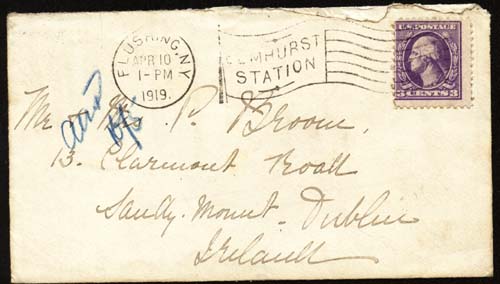 FLUSHING, N.Y.
APR 10
1-PM
1919.
ELMHURST
STATION
U.S. POSTAGE
3 CENTS 3
Mr P. Broom,
13. Claremont Road
Sandy. Mount. Dublin
Ireland